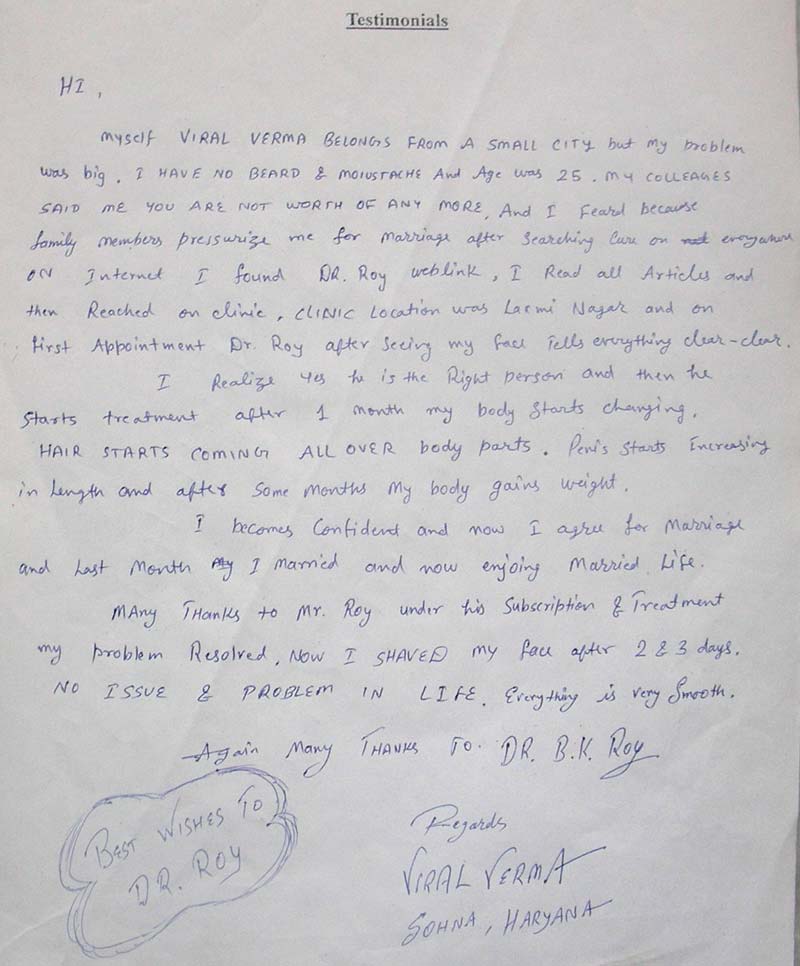 Testimonials
HI,
Myself VIRAL VERMA BELONGS FROM A SMALL CITY but my problem
was big. I HAVE NO BEARD & MOIUSTACHE And Age was 25. MY COLLEAGES
SAID ME YOU ARE NOT WORTH OF ANY MORE, And I feard because
family members pressurize me for Marriage after searching cure on everywhere
ON Internet I found DR. Roy weblink, I Read all Articles and
then Reached on clinic, CLINIC Location was Laxmi Nagar and on
first Appointment Dr. Roy after seeing my face tells everything clear-clear.
I Realize Yes he is the Right person and then he
starts treatment after 1 month my body starts changing.
HAIR STARTS COMING ALL OVER body parts. Penis starts Increasing
in Length and after some months My body gains weight.
I becomes Confident and now I agree for Marriage
and Last Month I Married and now enjoing Married Life.
MAny THanks to Mr. Roy under his Subscription & Treatment
my problem Resolved, NOW I SHAVED my face after 2 & 3 days.
NO ISSUE & PROBLEM IN LIFE. Everything is very Smooth.
Again Many THANKS TO. DR. B.K. Roy
BEST WISHES TO
DR. ROY
Regards
VIRAL VERMA
SOHNA, HARYANA